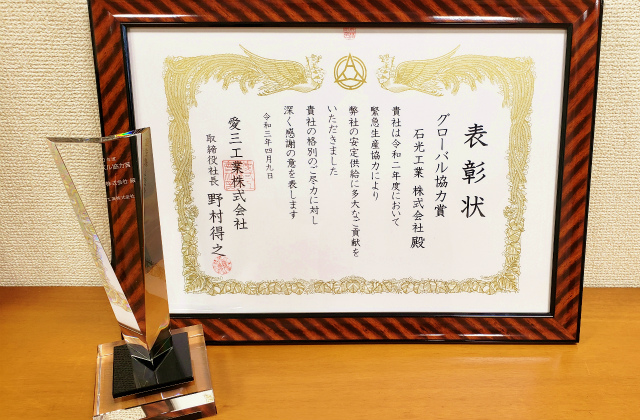 表彰状
グローバル協力賞
石光工業 株式会社 殿
貴社は令和二年度において
緊急生産協力により
弊社の安定供給に多大なご貢献を
いただきました
貴社の格別のご尽力に対し
深く感謝の意を表します
令和三年四月九日
愛三工業株式会社
取締役社長 野村得之